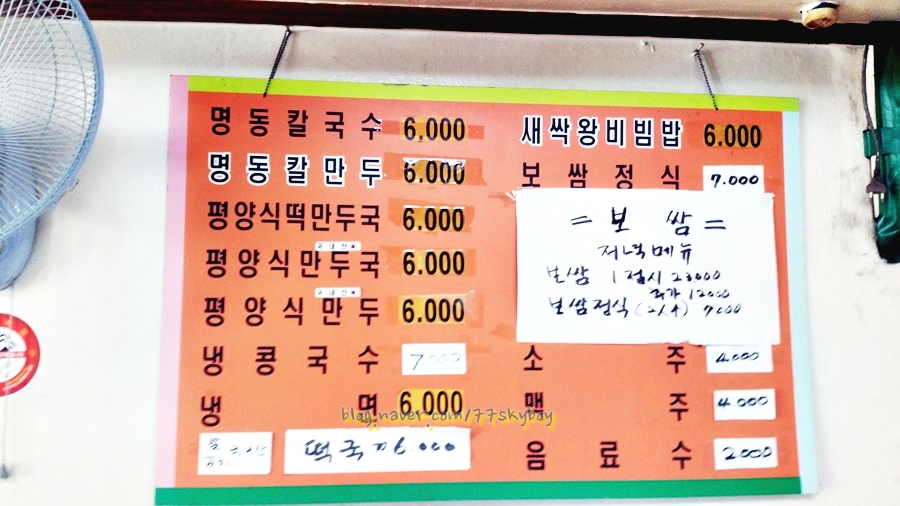 명동칼국수 6.000
명동칼만두 6.000
평양식떡만두국 6.000
국내산
평양식만두국 6.000
국내산
평양식만두 6.000
냉콩국수 7000
냉면 6.000
쌀 국내산
김치
떡국 6.000
새싹왕비빔밥 6.000
보쌈정식 7.000
= 보쌈 =
저녁메뉴
보쌈 1접시 23000
추가 12000
보쌈정식 (2人分) 7000
소주 4.000
맥주 4.000
음료수 2.000
blog.naver.com/77skyboy